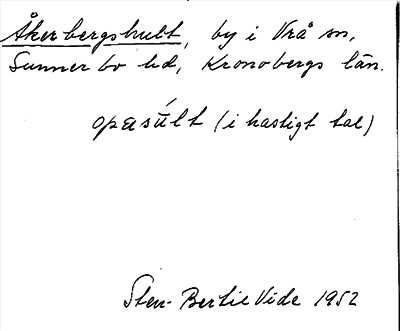 Åkerbergshult, by i Vrå sn,
Sunnerbo hd, Kronobergs län.
opasúlt (i hastigt tal)
Sten-Bertil Vide 1952